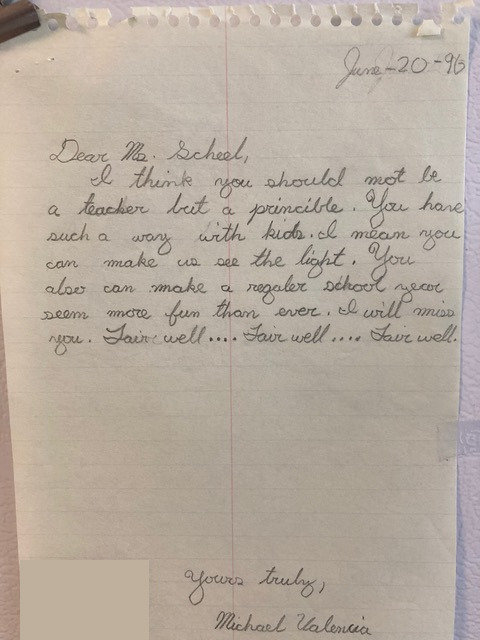 June-20-96
Dear Ms. Scheel,
I think you should not be
a teacher but a princible. You have
such a way with kids. I mean you
can make us see the light. You
also can make a reguler school year
seem more fun than ever. I will miss
you. Fair well.... Fair well.... Fair well.
Yours truly,
Michael Valencia